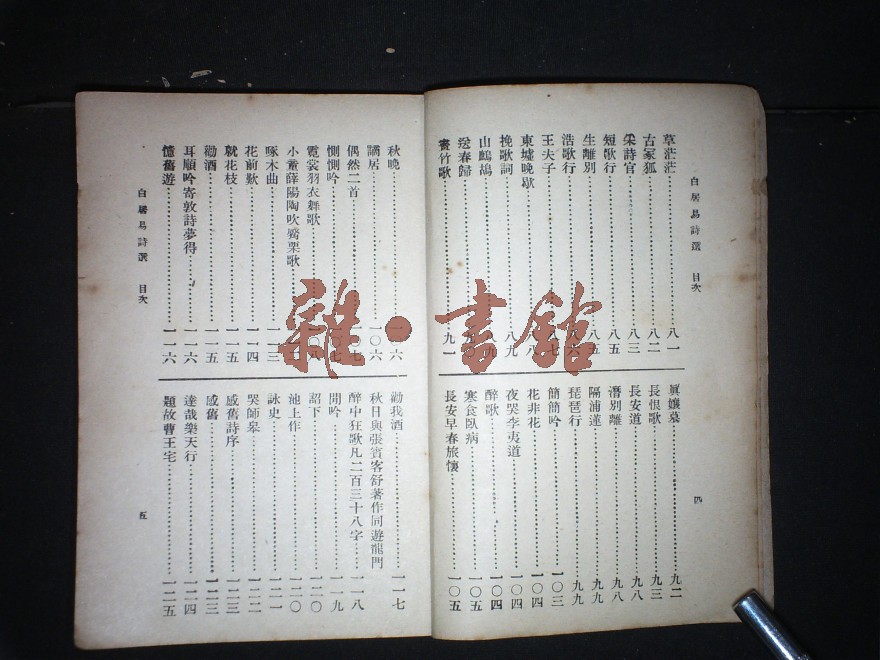 白居易詩選　目次
四
草茫茫……八一
古冢狐……八二
采詩官……八三
短歌行……八五
生離別……八五
浩歌行……八六
王夫子……八七
東墟晚歇……八八
挽歌詞……八九
山鷓鴣
送春歸
畫竹歌……九一
眞孃墓……九二
長恨歌……九三
長安道……九八
潛別離……九八
隔浦蓮……九九
琵琶行……九九
簡簡吟……一〇三
花非花……一〇四
夜哭李夷道……一〇四
醉歌……一〇四
寒食臥病……一〇五
長安早春旅懷……一〇五
秋晚……一〇六
讁居……一〇六
偶然二首……一〇七
惻惻吟……一〇七
霓裳羽衣舞歌……一〇八
小童薛陽陶吹觱栗歌
啄木曲……一一三
花前歎……一一四
就花枝……一一五
勸酒……一一五
耳順吟寄敦詩夢得……一一六
憶舊遊……一一六
勸我酒……一一七
秋日與張賓客舒著作同遊龍門
醉中狂歌凡二百三十八字……一一八
閒吟……一一九
詔下……一二〇
池上作……一二〇
詠史……一二一
哭師皋……一二二
感舊詩序……一二三
感舊……一二三
達哉樂天行……一二四
題故曹王宅……一二五
白居易詩選　目次
五
雜·書館